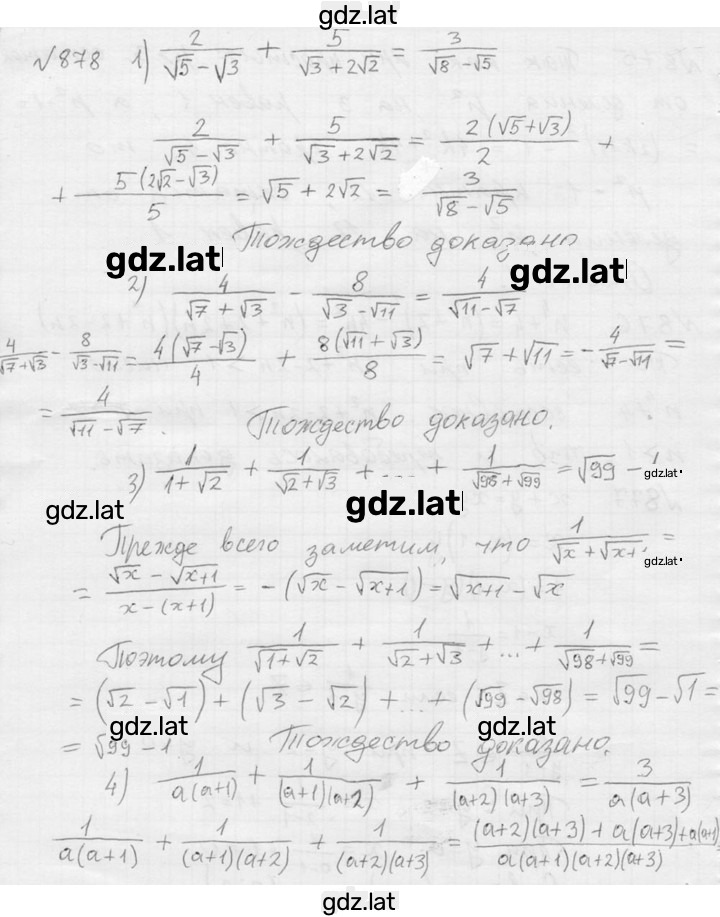 gdz.lat
№878 1) 2/(√5 − √3) + 5/(√3 + 2√2) = 3/(√8 − √5)
2/(√5 − √3) + 5/(√3 + 2√2) = 2(√5 + √3)/2 +
+ 5(2√2 − √3)/5 = √5 + 2√2 = 3/(√8 − √5)
Тождество доказано
gdz.lat gdz.lat
2) 4/(√7 + √3) − 8/(√3 − √11) = 4/(√11 − √7)
4/(√7 + √3) − 8/(√3 − √11) = 4(√7 − √3)/4 + 8(√11 + √3)/8 = √7 + √11 = −4/(√7 − √11) =
= 4/(√11 − √7). Тождество доказано.
3) 1/(1 + √2) + 1/(√2 + √3) + ... + 1/(√98 + √99) = √99 − 1
gdz.lat gdz.lat gdz.lat
Прежде всего заметим, что 1/(√x + √x+1) =
gdz.lat
= (√x − √x+1)/(x − (x+1)) = −(√x − √x+1) = √x+1 − √x
Поэтому 1/(√1 + √2) + 1/(√2 + √3) + ... + 1/(√98 + √99) =
= (√2 − √1) + (√3 − √2) + + (√99 − √98) = √99 − √1 =
gdz.lat gdz.lat
= √99 − 1 Тождество доказано.
4) 1/(a(a+1)) + 1/((a+1)(a+2)) + 1/((a+2)(a+3)) = 3/(a(a+3))
1/(a(a+1)) + 1/((a+1)(a+2)) + 1/((a+2)(a+3)) = ((a+2)(a+3) + a(a+3) + a(a+1))/(a(a+1)(a+2)(a+3))
gdz.lat